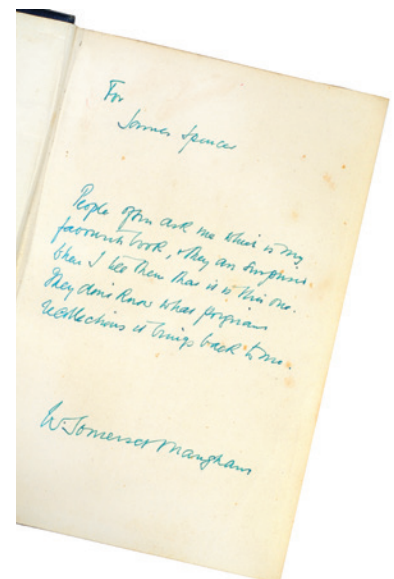 For
James Spencer
People often ask me which is my
favourite book, & they are surprised
when I tell them that it is this one.
They don't know what poignant
recollections it brings back to me.
W. Somerset Maugham